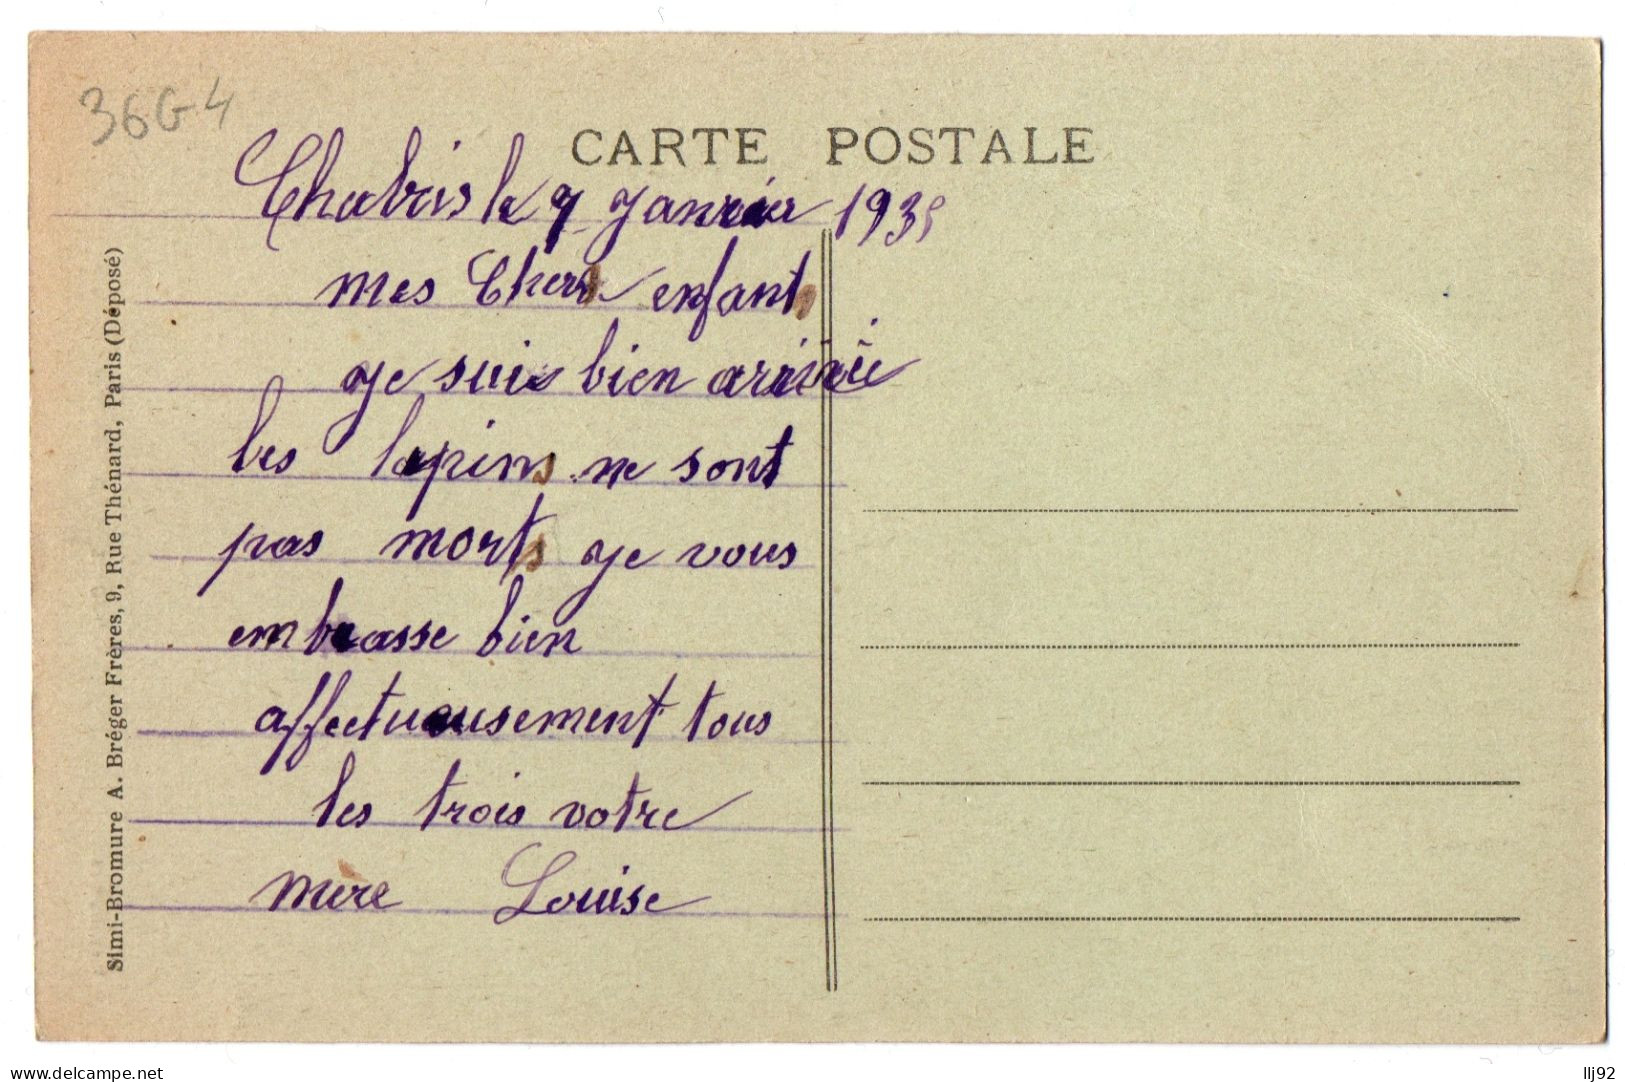 36G4
CARTE POSTALE
Chabris le 7 janvier 1935
mes Chers enfants
je suis bien arrivée
les lapins ne sont
pas morts je vous
embrasse bien
affectueusement tous
les trois votre
mère Louise
Simi-Bromure A. Bréger Frères, 9, Rue Thénard, Paris (Déposé)
www.delcampe.net
llj92